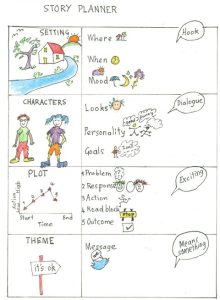 STORY PLANNER
SETTING
Where
When
Mood
Hook
CHARACTERS
Looks
Personality
Goals
Dialogue
PLOT
Action
High
Start
Time
End
1 Problem
2 Respons
3 Action
4 Roadblock
STOP
5 Outcome
Exciting
THEME
it's ok
Message
Mean
something